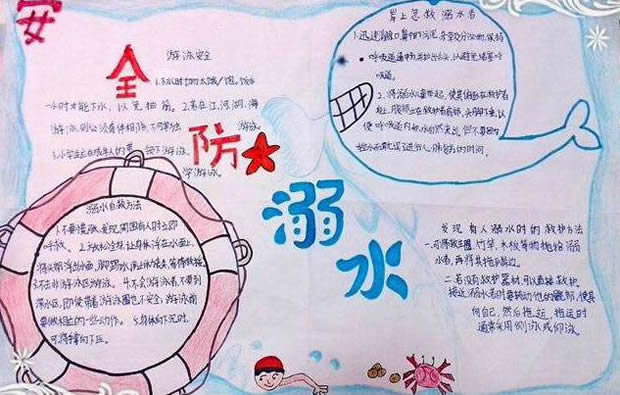 安
全
防
溺
水
游泳安全
1.下水时切勿太饿/饱。饭后
一小时才能下水，以免抽筋。2.若在江、河、湖、海
游泳，则必须有伴相陪，不可单独游泳。
3.小学生应在成年人的
下游泳
学游泳。
溺水自救方法
1.不要慌张，发现周围有人时立即
呼救。2.放松全身，让身体浮在水面上，
将头部浮出水面，用脚踢水，
3.不在非游泳区游泳。4.不会游泳者，不要到
深水区，即使带着游泳圈也不安全；游泳前
要做相应的一些动作。5.身体向下沉时，
可将掌向下压。
岸上急救溺水者
1.迅速清除口、鼻中的污泥、杂草及分泌物，保持
呼吸道通畅，并拉出舌头，以避免堵塞呼
吸道。
2.将溺水儿童举起，使其俯卧在救护者
肩上，腹部紧
使呼吸道内积水自然流出，但不要因为
控水而耽误了进行心肺复苏的时间。
发现有人溺水时的救护方法
一、可将救生圈、竹竿、木板等物抛给溺
水者，再将其拖至岸边。
二、若没有救护器材，可以直接救护。
接近溺水者时要转动他的髋部，使其
背向自己，然后拖运，拖运时
通常采用侧泳或仰泳。